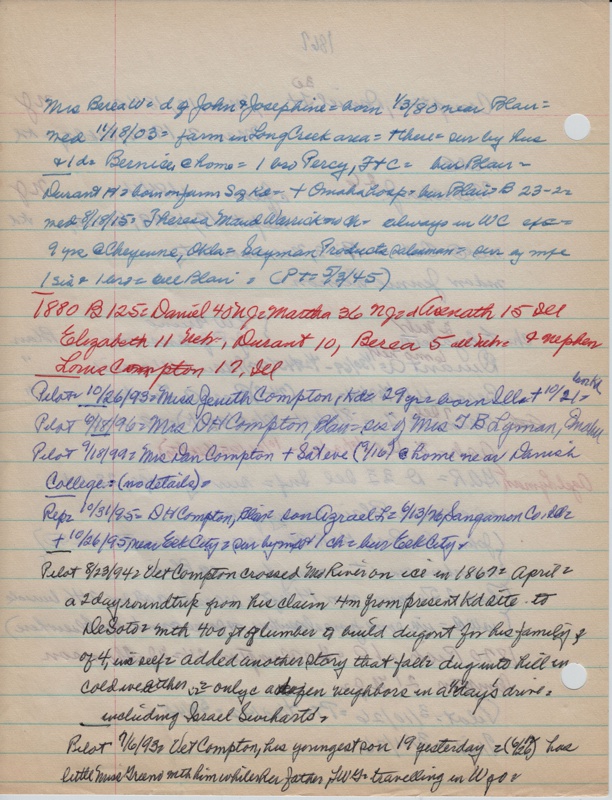 Mrs Berea W = d of John & Josephine = born 1/3/80 near Blair =
med 11/18/03 = farm in Long Creek area = + there = sur by hus
& 1 d = Bernice, @ home = 1 bro Percy, F+C = bur Blair =
Durant H = born on farm = + Omaha = bur Blair = B 23-2 =
med 8/18/15 = Theresa Maud Warrick = no ch = always in WC =
9 yrs @ Cheyenne, Okla = Sayman Products salesman = sur by
1 sis & 1 bro = all Blair = (Pt = 5/3/45)
1880 B 125 = Daniel 40 NJ = Martha 36 NJ = d Asenath 15 Ill
Elizabeth 11 Nebr, Durant 10, Berea 5 all Nebr = & nephew
Louis Compton 17, Ill
Pilot = 10/26/93 = Miss Jenett Compton, Kd = 29 yrs = born Ills + 10/21 =
Pilot 6/18/96 = Mrs DH Compton, Blair = sis of Mrs T B Lyman, Omaha
Pilot 9/18/99 = Mrs Dan Compton + Sat eve (9/16) @ home near Danish
College = (no details) =
Rep = 10/31/95 = DH Compton, Blair = son Azrael L = 6/13/76, Sangamon Co. Ill =
+ 10/26/95, near Elk City = sur by 1 ch = bur Elk City =
Pilot 8/23/94 = Vet Compton crossed Mo River on ice in 1867 = April =
a 2 day round trip from his claim 4 m from present Kd site to
DeSoto = with 400 ft of lumber to build dugout for his family of
of 4, = added another story that fall = dug into hill in
cold weather = only a dozen neighbors in a day's drive =
including Israel Swihart's =
Pilot 7/6/93 = Vet Compton, his youngest son 19 yesterday = has
little Miss with him while her father, is travelling in